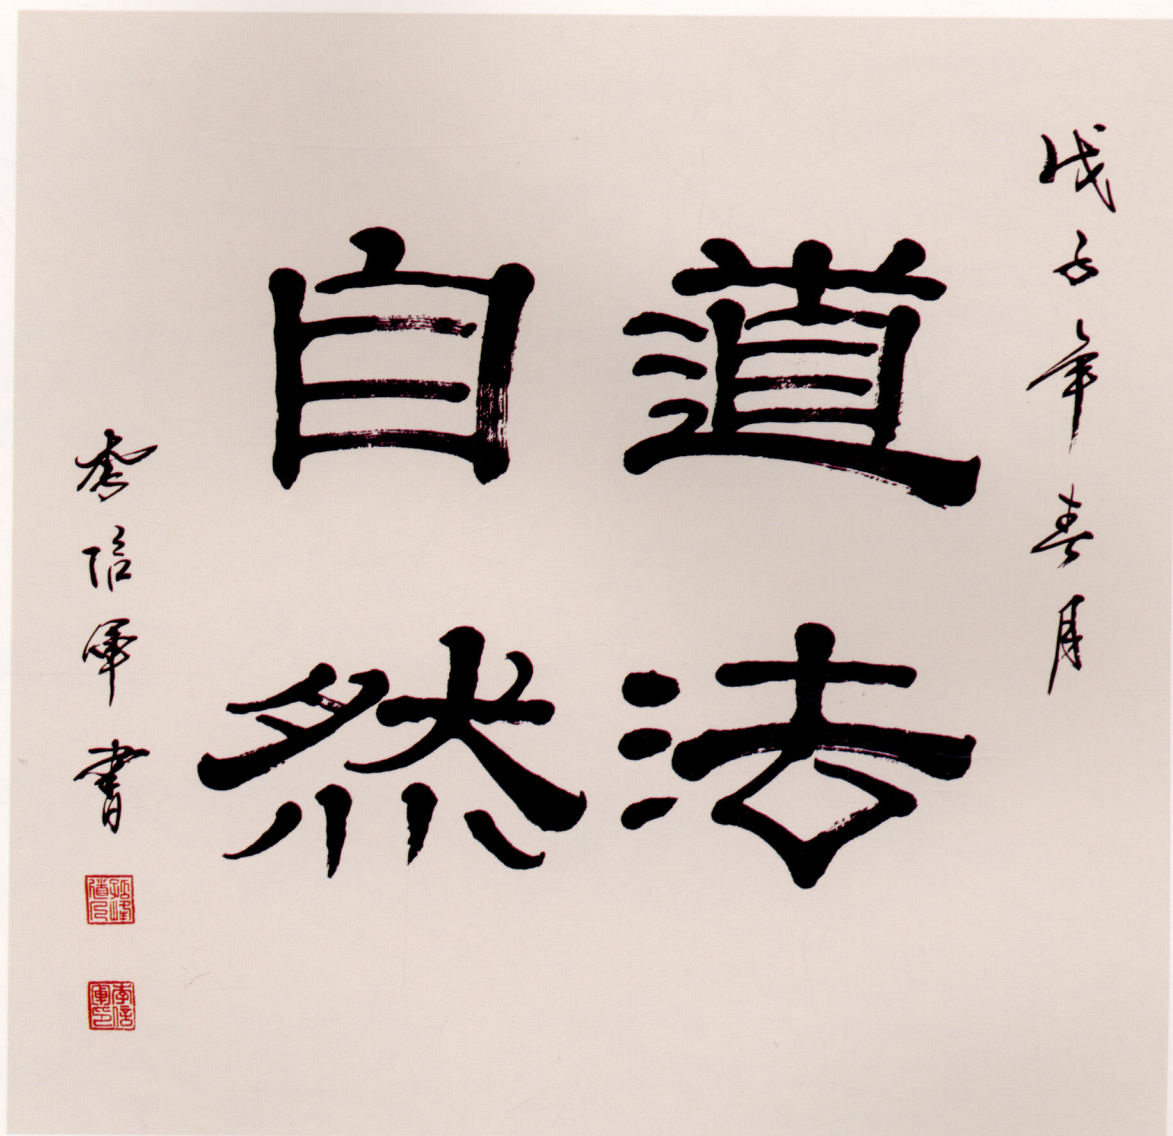 戊子年春月
道法
自然
李信軍書
李信軍印